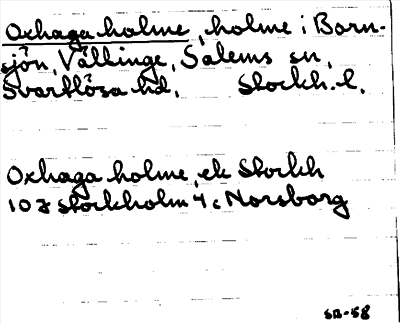 Oxhaga holme, holme i Born-
sjön, Vällinge, Salems sn,
Svartlösa hd, Stockh. l.
Oxhaga holme, ek Stockh
10 J Stockholm 4 c Norsborg
SB-58